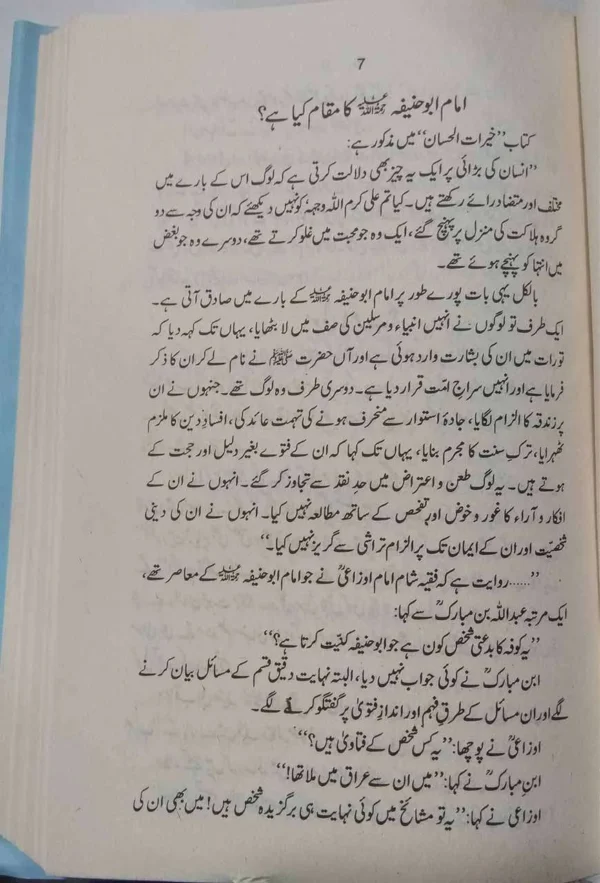 7
امام ابوحنیفہ رحمۃ اللہ علیہ کا مقام کیا ہے؟
کتاب ”خیرات الحسان“ میں مذکور ہے:
”انسان کی بڑائی پر ایک یہ چیز بھی دلالت کرتی ہے کہ لوگ اس کے بارے میں
مختلف اور متضاد رائے رکھتے ہیں۔ کیا تم علی کرم اللہ وجہہٗ کو نہیں دیکھتے کہ ان کی وجہ سے دو
گروہ ہلاکت کی منزل پر پہنچ گئے، ایک وہ جو محبت میں غلو کرتے تھے، دوسرے وہ جو بغض
میں انتہا کو پہنچے ہوئے تھے۔
بالکل یہی بات پورے طور پر امام ابوحنیفہ رحمۃ اللہ علیہ کے بارے میں صادق آتی ہے۔
ایک طرف تو لوگوں نے انہیں انبیاء و مرسلین کی صف میں لا بٹھایا، یہاں تک کہہ دیا کہ
تورات میں ان کی بشارت وارد ہوئی ہے اور آں حضرت ﷺ نے نام لے کر ان کا ذکر
فرمایا ہے اور انہیں سراجِ امت قرار دیا ہے۔ دوسری طرف وہ لوگ تھے۔ جنہوں نے ان
پر زندقہ کا الزام لگایا، جادۂ استوار سے منحرف ہونے کی تہمت عائد کی، افسادِ دین کا ملزم
ٹھہرایا، ترکِ سنت کا مجرم بنایا، یہاں تک کہا کہ ان کے فتوے بغیر دلیل اور حجت کے
ہوتے ہیں۔ یہ لوگ طعن و اعتراض میں حدِ نقد سے تجاوز کر گئے۔ انہوں نے ان کے
افکار و آراء کا غور و خوض اور تفحص کے ساتھ مطالعہ نہیں کیا۔ انہوں نے ان کی دینی
شخصیّت اور ان کے ایمان تک پر الزام تراشی سے گریز نہیں کیا۔“
”......روایت ہے کہ فقیہ شام امام اوزاعیؒ نے جو امام ابوحنیفہ رحمۃ اللہ علیہ کے معاصر تھے،
ایک مرتبہ عبداللہ بن مبارکؒ سے کہا:
”یہ کوفہ کا بدعتی شخص کون ہے جو ابوحنیفہ کنیّت کرتا ہے؟“
ابن مبارکؒ نے کوئی جواب نہیں دیا، البتہ نہایت دقیق قسم کے مسائل بیان کرنے
لگے اور ان مسائل کے طرقِ فہم اور اندازِ فتویٰ پر گفتگو کرنے لگے۔
اوزاعیؒ نے پوچھا: ”یہ کس شخص کے فتاویٰ ہیں؟“
ابنِ مبارکؒ نے کہا: ”میں ان سے عراق میں ملا تھا!“
اوزاعی نے کہا: ”یہ تو مشائخ میں کوئی نہایت ہی برگزیدہ شخص ہیں! میں بھی ان کی